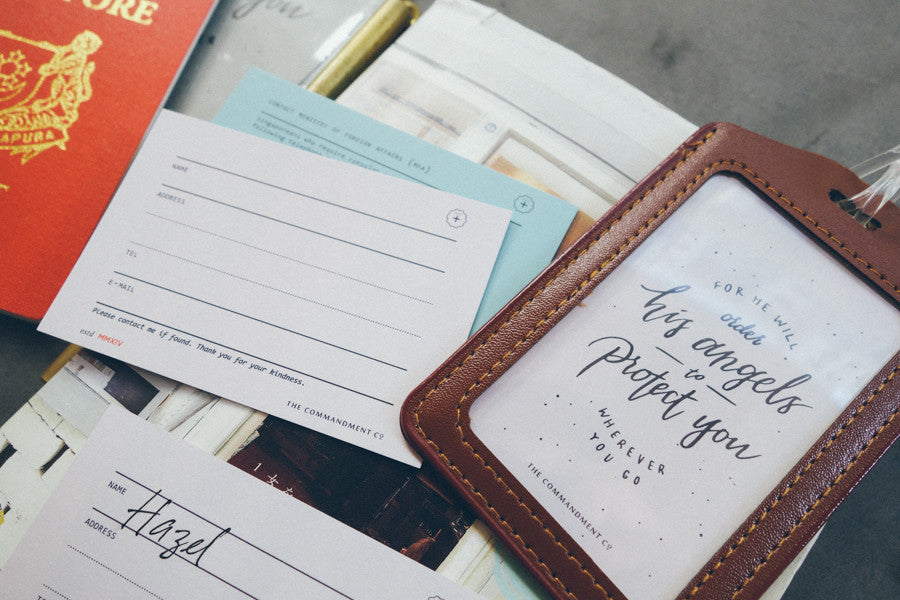 PORE
APURA
you
CONTACT MINISTRY OF FOREIGN AFFAIRS (MFA)
Singaporeans who require consular
following telephone
NAME
ADDRESS
TEL
E-MAIL
Please contact me if found. Thank you for your kindness.
estd MMXIV
THE COMMANDMENT Cº
NAME
Hazel
ADDRESS
FOR HE WILL
order
his angels
to
protect you
WHEREVER
YOU GO
THE COMMANDMENT Cº